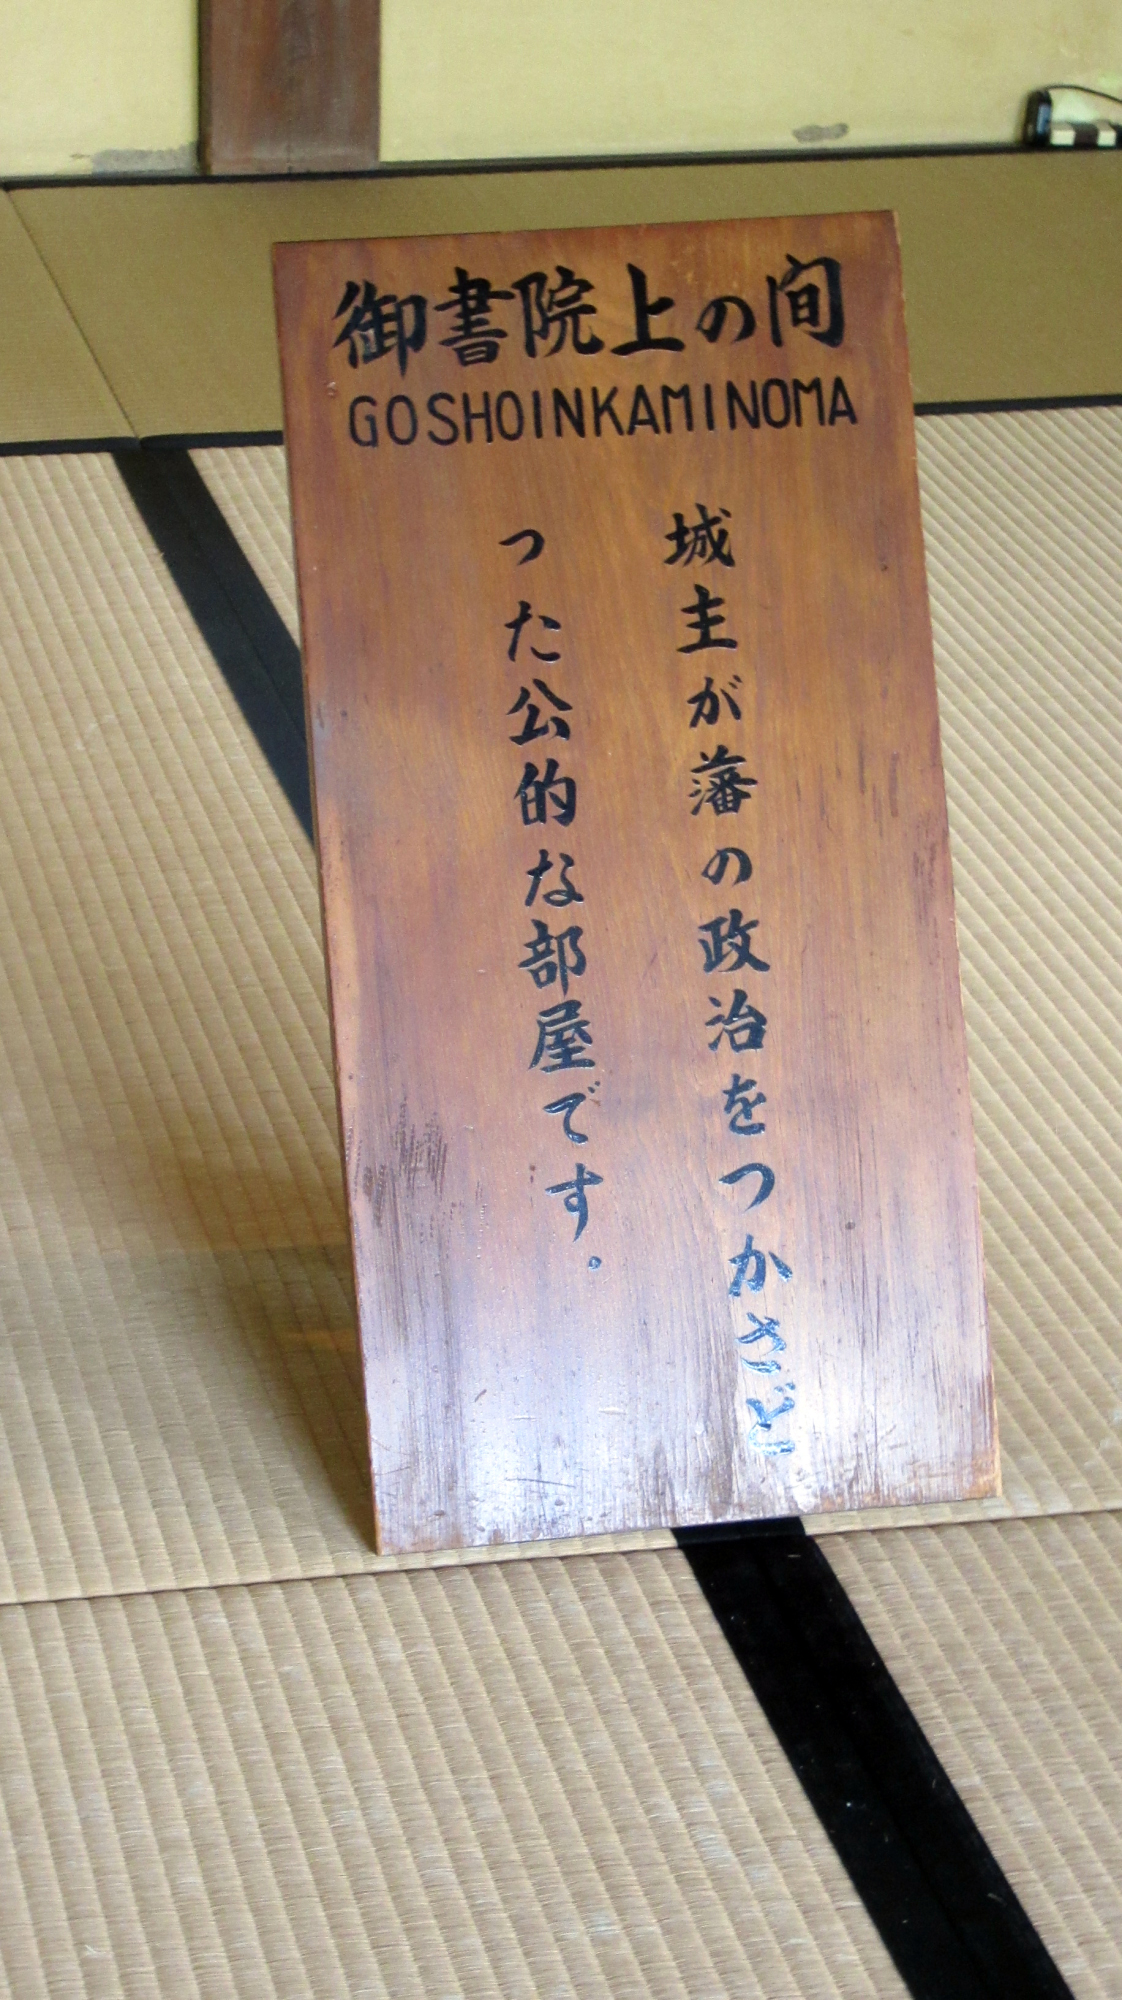 御書院上の間
GOSHOINKAMINOMA
城主が藩の政治をつかさど
った公的な部屋です。